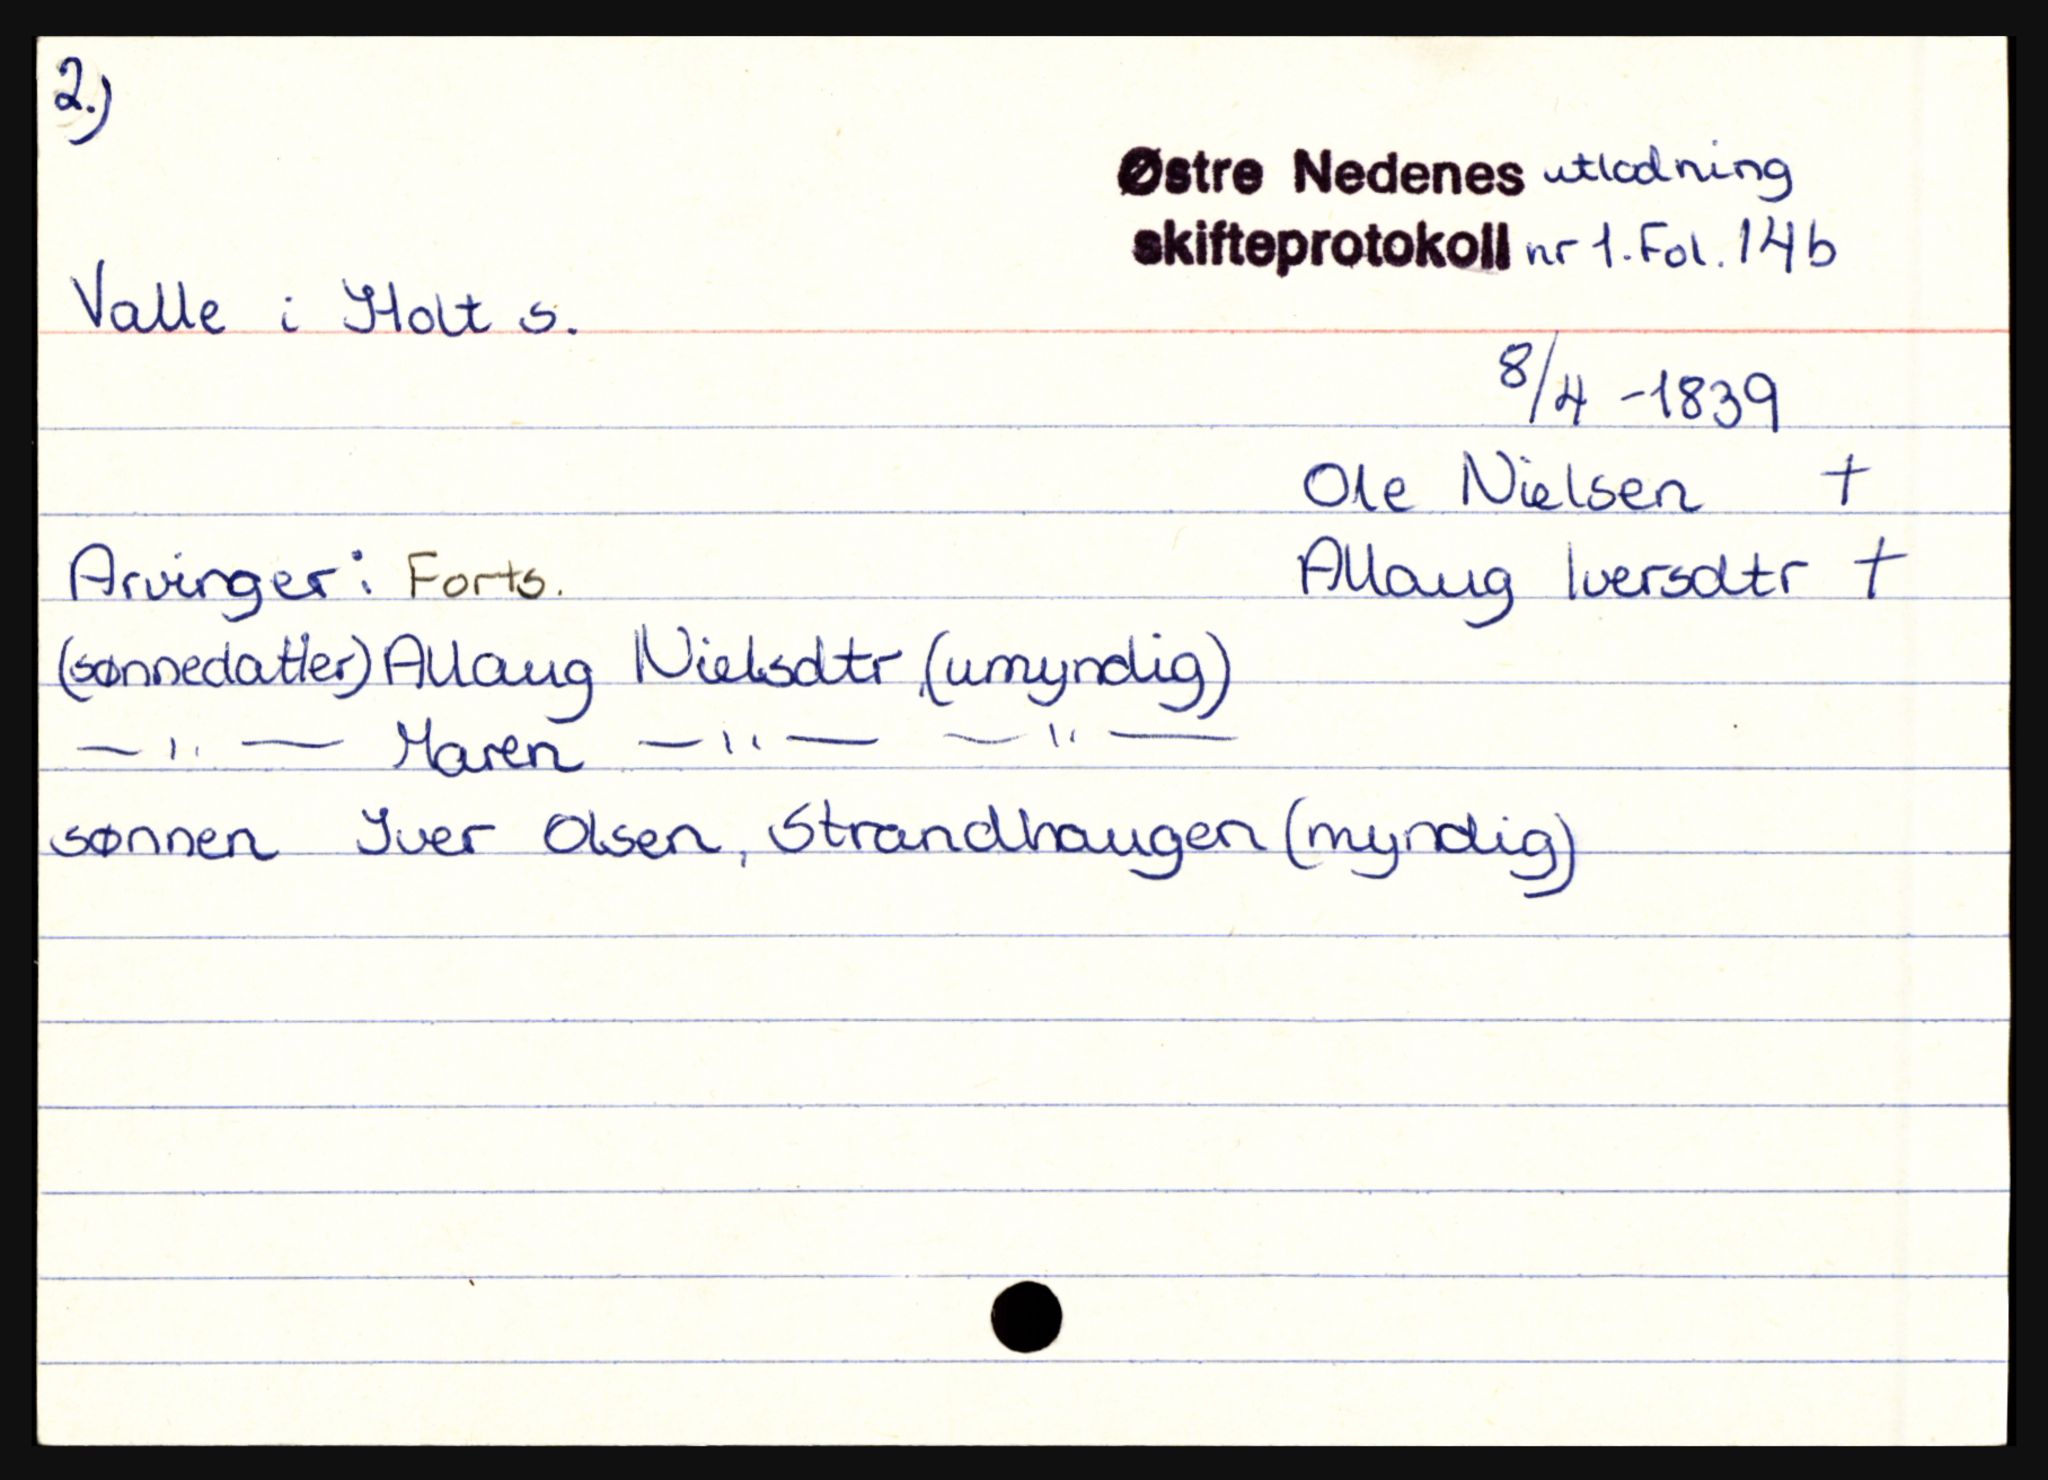 2.)
Østre Nedenes utlodning
skifteprotokoll nr 1. Fol. 14b
Valle i Holt s.
8/4 -1839
Ole Nielsen †
Arvinger: Forts.
Allaug Iversdtr †
(sønnedatter) Allaug Nielsdtr, (umyndig)
— " — Maren — " — — " —
sønnen Iver Olsen, Strandhaugen (myndig)